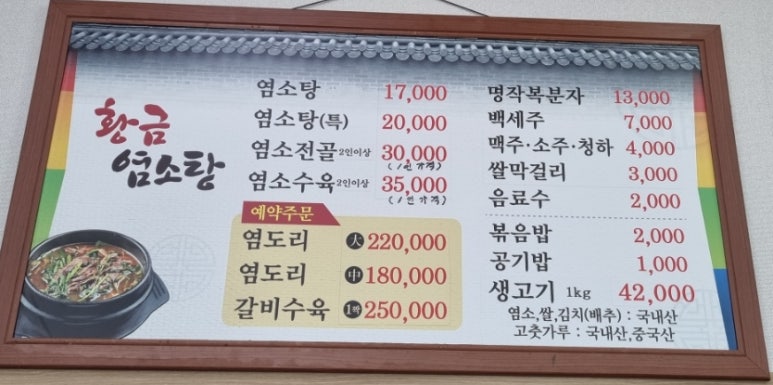 황금
염소탕
염소탕 17,000
염소탕(특) 20,000
염소전골 2인이상 30,000
(1인 가격)
염소수육 2인이상 35,000
(1인 가격)
예약주문
염도리 大 220,000
염도리 中 180,000
갈비수육 1짝 250,000
명작복분자 13,000
백세주 7,000
맥주·소주·청하 4,000
쌀막걸리 3,000
음료수 2,000
볶음밥 2,000
공기밥 1,000
생고기 1kg 42,000
염소,쌀,김치(배추) : 국내산
고춧가루 : 국내산,중국산